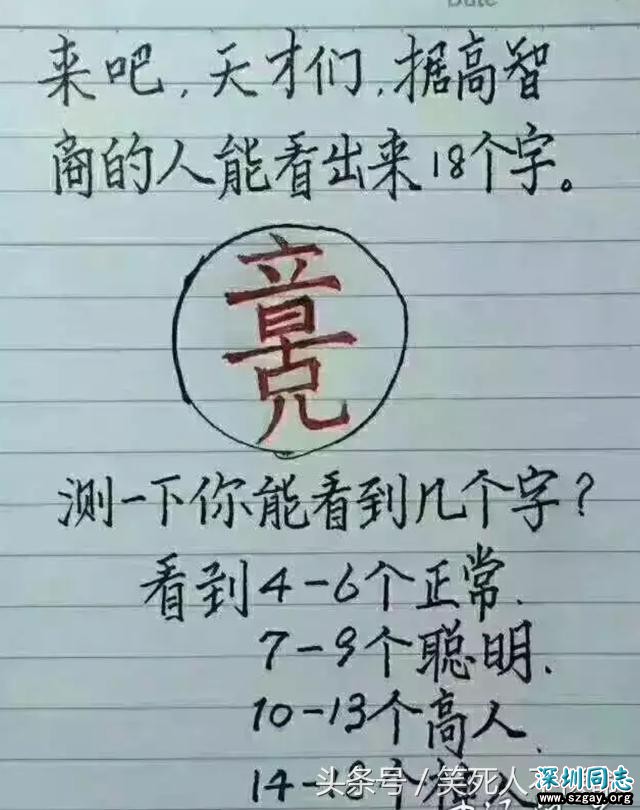 Date
来吧，天才们，据高智
商的人能看出来18个字。
测一下你能看到几个字？
看到4-6个正常.
7-9个聪明.
10-13个高人.
14-18个
头条号／笑死人不
深圳同志
www.szgay.org